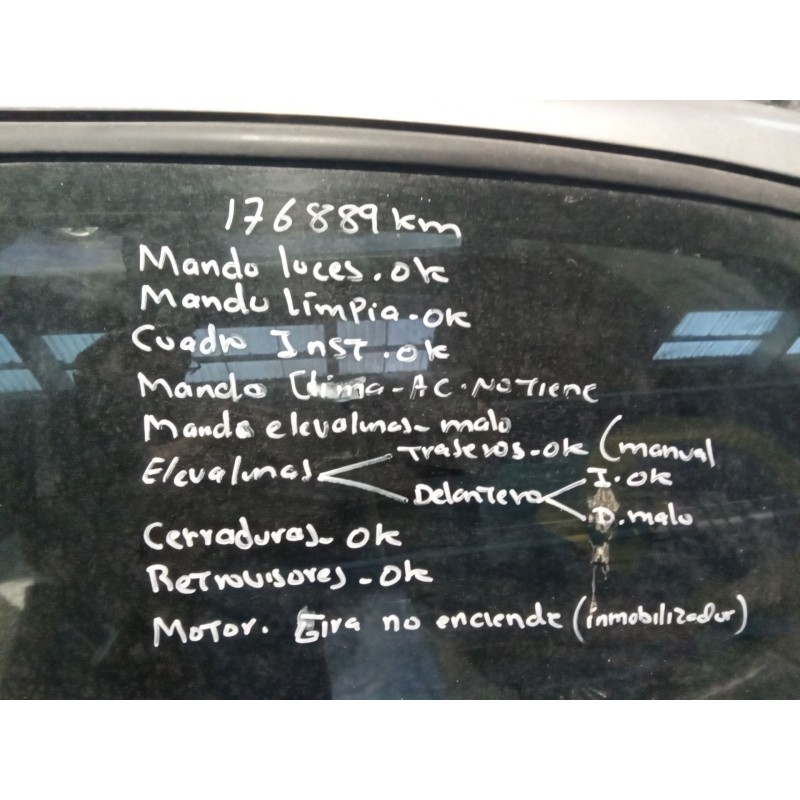 176889 km
Mando luces. ok
Mando limpia. ok
Cuadro Inst. ok
Mando Clima - AC. NO TIENE
Mando elevalunas - malo
Elevalunas Traseros - ok (manual
Delantero I. ok
D. malo
Cerraduras - ok
Retrovisores - ok
Motor. Gira no enciende (inmobilizador)